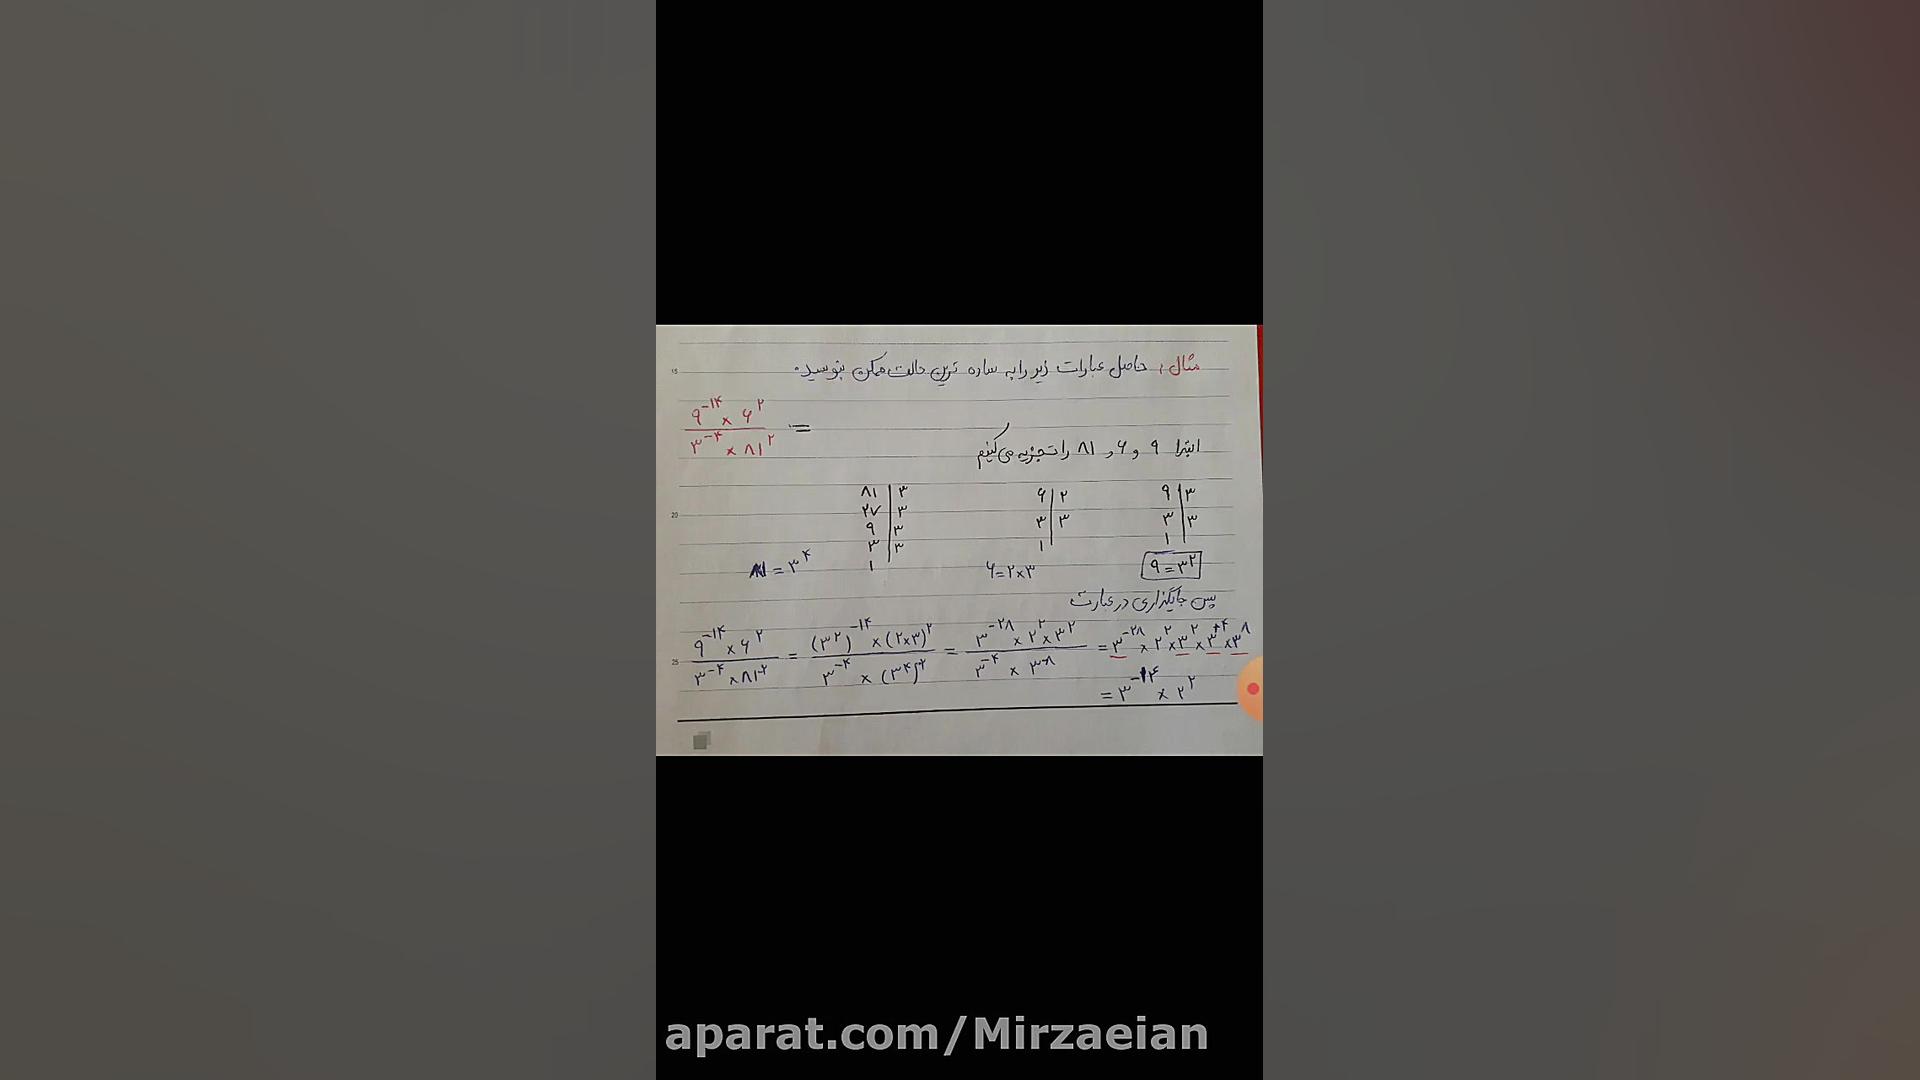 مثال: حاصل عبارات زیر را به ساده ترین حالت ممکن بنویسید.
۹^-۱۴ × ۶^۲ / ۳^-۴ × ۸۱^۲ =
ابتدا ۹ و ۶ و ۸۱ را تجزیه می کنیم
۸۱ | ۳ ۶ | ۲ ۹ | ۳
۲۷ | ۳ ۳ | ۳ ۳ | ۳
۹ | ۳ ۱ ۱
۳ | ۳
۱
۸۱ = ۳^۴ ۶=۲×۳ ۹=۳^۲
پس جایگذاری در عبارت
۹^-۱۴ × ۶^۲ / ۳^-۴ × ۸۱^-۲ = (۳^۲)^-۱۴ × (۲×۳)^۲ / ۳^-۴ × (۳^۴)^-۲ = ۳^-۲۸ × ۲^۲ × ۳^۲ / ۳^-۴ × ۳^-۸ = ۳^-۲۸ × ۲^۲ × ۳^۲ × ۳^+۴ × ۳^۸
= ۳^-۱۴ × ۲^۲
aparat.com/Mirzaeian